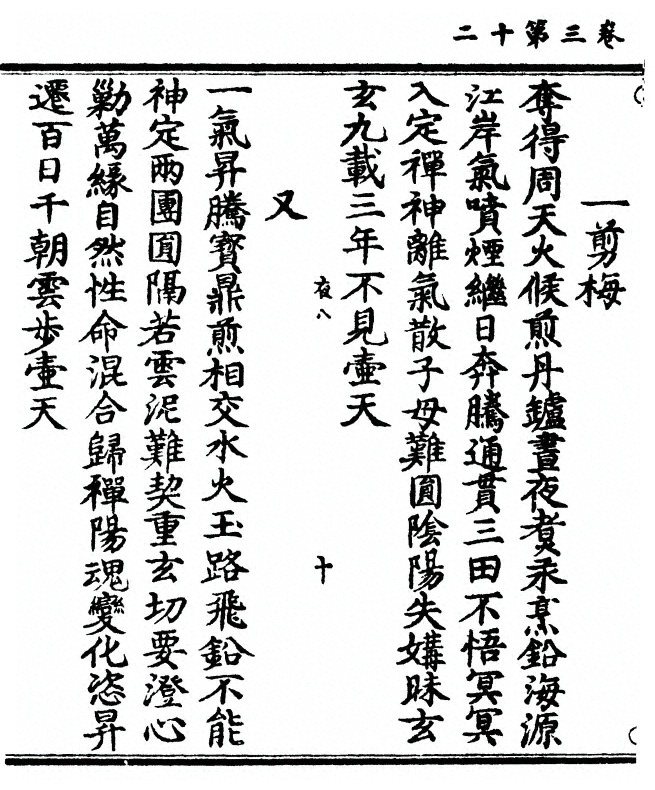 卷三第十二
一剪梅
奪得周天火候煎丹鑪晝夜煑汞烹鉛海源
江岸氣噴煙繼日奔騰通貫三田不悟冥冥
入定禪神離氣散子母難圓陰陽失媾昧玄
玄九載三年不見壷天
夜八
十
又
一氣昇騰寳鼎煎相交水火玉路飛鉛不能
神定兩團圓隔若雲泥難契重玄切要澄心
勦萬緣自然性命混合歸禪陽魂變化恣昇
遷百日千朝雲步壷天